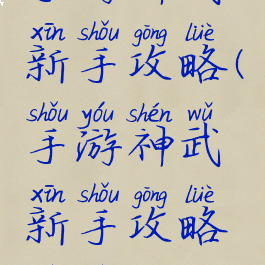 xīn shǒu gōng lüè
新手攻略(
shǒu yóu shén wǔ
手游神武
xīn shǒu gōng lüè
新手攻略